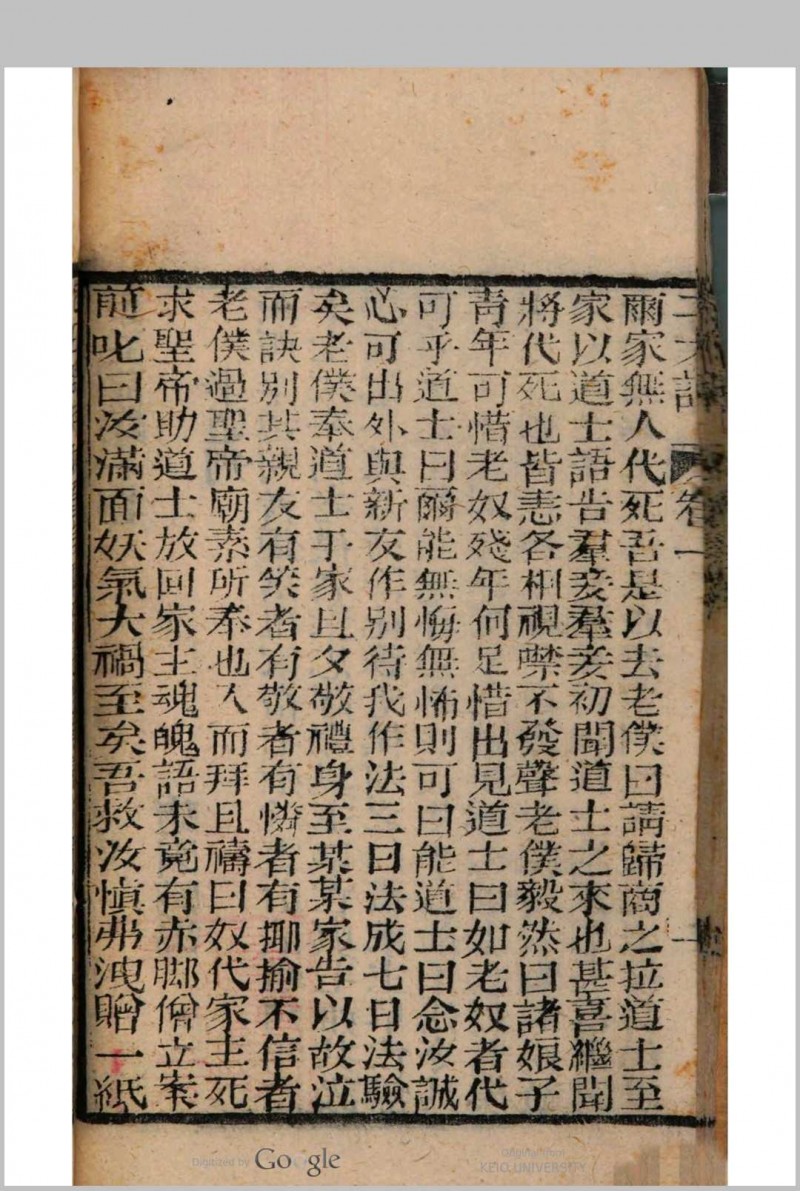 卷一
爾家無人代死吾是以去老僕曰請歸商之拉道士至
家以道士語告羣妾羣妾初聞道士之來也甚喜繼聞
將代死也皆恚各相視噤不發聲老僕毅然曰諸娘子
靑年可惜老奴殘年何足惜出見道士曰如老奴者代
可乎道士曰爾能無悔無怖則可曰能道士曰念汝誠
心可出外與新友作别待我作法三日法成七日法驗
矣老僕奉道士于家旦夕敬禮身至某某家告以故泣
而訣别其親友有笑者有敬者有憐者有揶揄不信者
老僕過聖帝廟素所奉也入而拜且禱曰奴代家主死
求聖帝助道士放回家主魂魄語未竟有赤脚僧立案
前叱曰汝滿面妖氣大禍至矣吾救汝慎弗洩贈一紙
Digitized by Google
Original from
KEIO UNIVERSITY